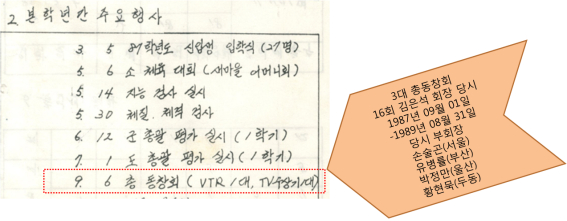 2. 본학년간 주요행사
3. 5 87학년도 신입생 입학식 (27명)
5. 6 소 체육 대회 (새마을 어머니회)
5. 14 지능 검사 실시
5. 30 체질. 체력 검사
6. 12 군 총괄 평가 실시 (1학기)
7. 1 도 총괄 평가 실시 (1학기)
9. 6 총 동창회 ( VTR 1대, TV수상기 1대)
3대 총동창회
16회 김은석 회장 당시
1987년 09월 01일
-1989년 08월 31일
당시 부회장
손술곤(서울)
유병률(부산)
박정만(울산)
황현묵(두동)